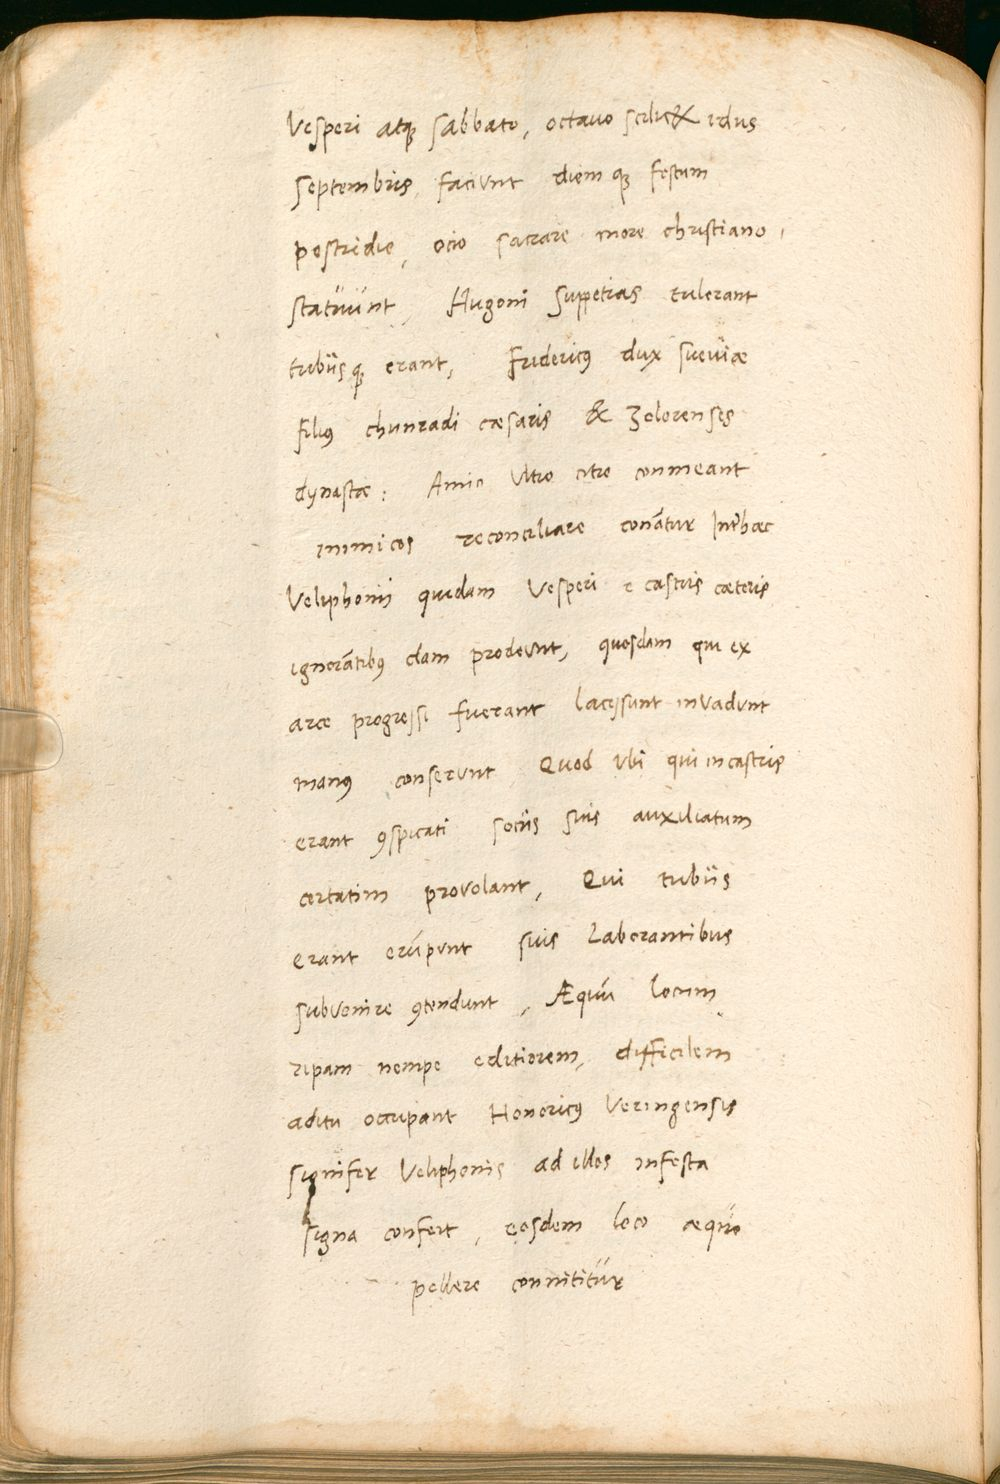 Vesperi atqꝫ sabbato, octauo scilicet idus
septembris, faciunt diemqꝫ festum
postridie, ocio sacrare more christiano,
statuunt, Hugoni suppetias tulerant
tubiisqꝫ erant, Fridericꝰ dux sueuiæ
filiꝰ chunradi cæsaris & Zolorenses
dynastæ: Amici vltro citro conmeant
inimicos reconciliare conãtur Interhæc
Veliphonii quidam Vesperi e castris cæteris
ignorãtibꝰ clam prodeunt, quosdam qui ex
arce progressi fuerant lacessunt inuadunt
manꝰ conserunt Quod vbi qui in castris
erant ꝯspicati sociis suis auxiliatum
certatim prouolant, Qui tubiis
erant erũpunt suis Laborantibus
subuenire ꝯtendunt, Æquũ locum
ripam nempe editiorem, difficilem
aditu occupant Honoricꝰ Veringensis
signifer Veliphonis ad illos infesta
signa confert, eosdem loco æquo
pellere connititur